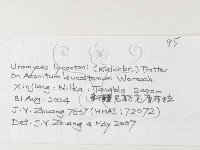 95
Uromyces lycoctoni (Kalchbr.) Trotter
on Aconitum leucostomum Worosch.
Xinjiang: Nilka: Tangbla 2000m
31 Aug. 2004
J.-Y. Zhuang 7837 (HMAS 172072)
Det. J.Y. Zhuang 4 May 2007